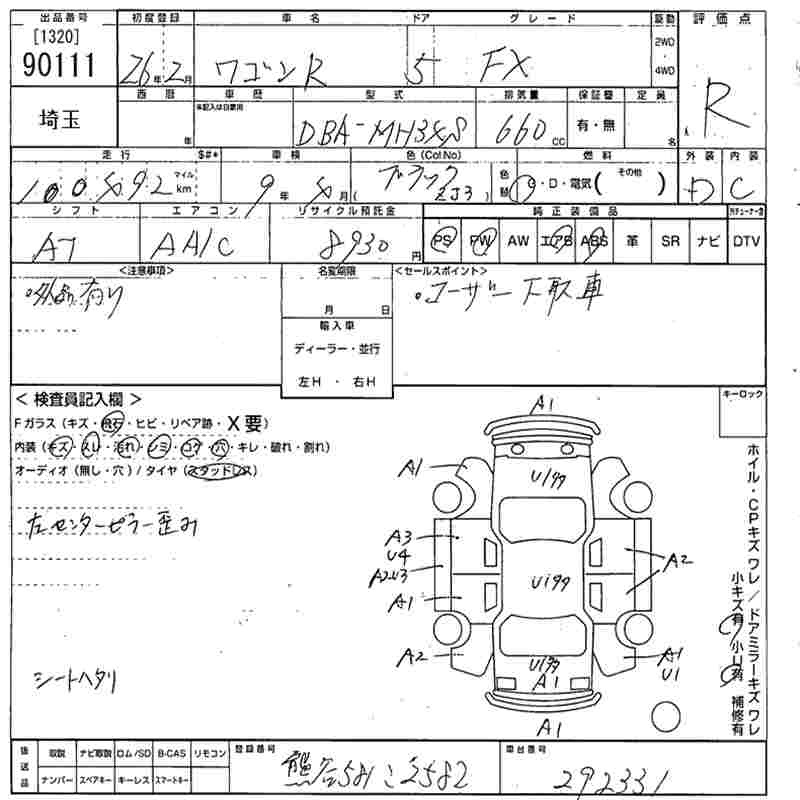 出品番号 初度登録 車名 ドア グレード 駆動 評価点
[1320]
90111 26年2月 ワゴンR 5 FX 2WD・4WD R
埼玉 西暦 車歴 型式 排気量 保証書 定員
年 ※記入は自家用 DBA-MH34S 660cc 有・無 名
走行 $#* 車検 色(ColNo) 燃料 外装 内装
マイル km 9年 月 ブラック ZJ3 色替 G・D・電気( その他 ) D C
シフト エアコン リサイクル預託金 純正装備品
AT AAC 8930円 PS PW AW エアB ABS 革 SR ナビ DTV
<注意事項> 名変期限 <セールスポイント>
有り 月 日 ・ユーザー下取車
輸入車
ディーラー・並行
左H ・ 右H
< 検査員記入欄 > キーロック
Fガラス(キズ・飛石・ヒビ・リペア跡・X要)
内装(キズ・スレ・汚れ・シミ・コゲ・穴・キレ・破れ・割れ)
オーディオ(無し・穴)/タイヤ(スタッドレス)
左センターピラー歪み
シートヘタリ
A1
A1 U199
A3
U4
A2U3 U199 A2
A1
A2 U199 A1
A1 U1
A1
ホイル・CPキズワレ/ドアミラーキズワレ
小キズ有 小U有 補修有
後送品 取説 ナビ取説 ロム/SD B-CAS リモコン 登録番号 車台番号
ナンバー スペアキー キーレス スマートキー 熊谷581 こ2582 292331